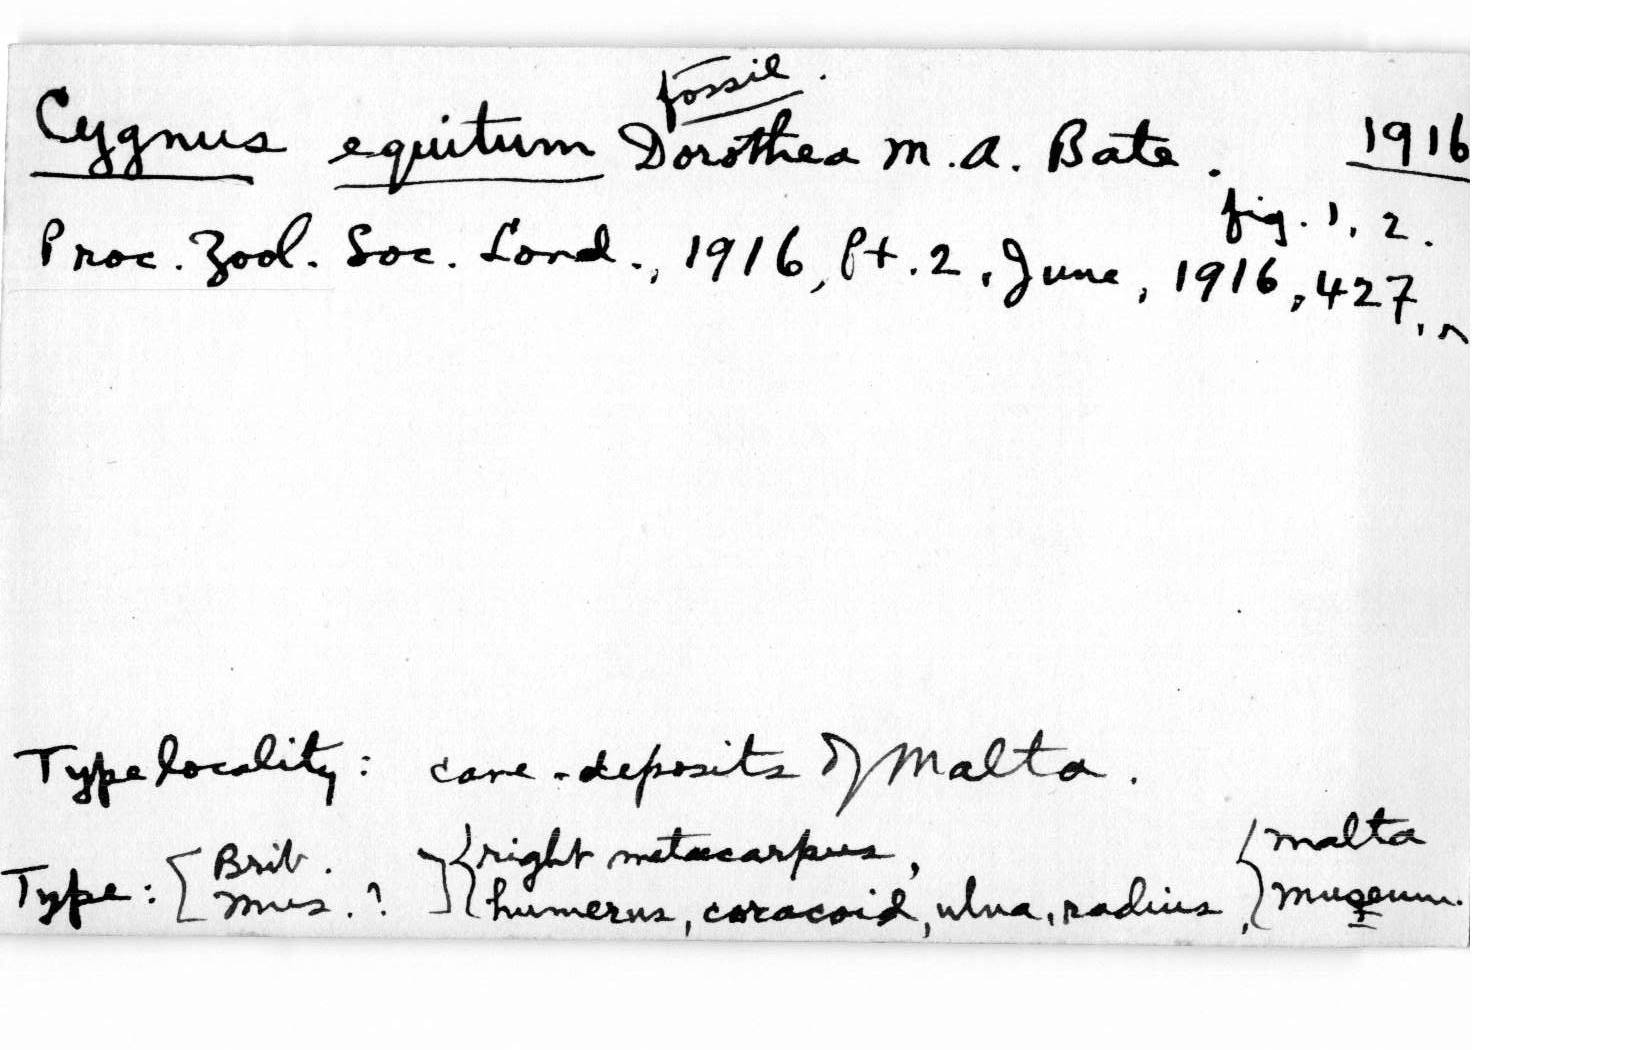 fossil.
Cygnus equitum Dorothea M. A. Bate. 1916
fig. 1, 2.
Proc. Zool. Soc. Lond., 1916, pt. 2, June, 1916, 427,
Type locality: cave-deposits of Malta.
Type: [Brit. Mus. ?] {right metacarpus, humerus, coracoid, ulna, radius, {Malta Museum.